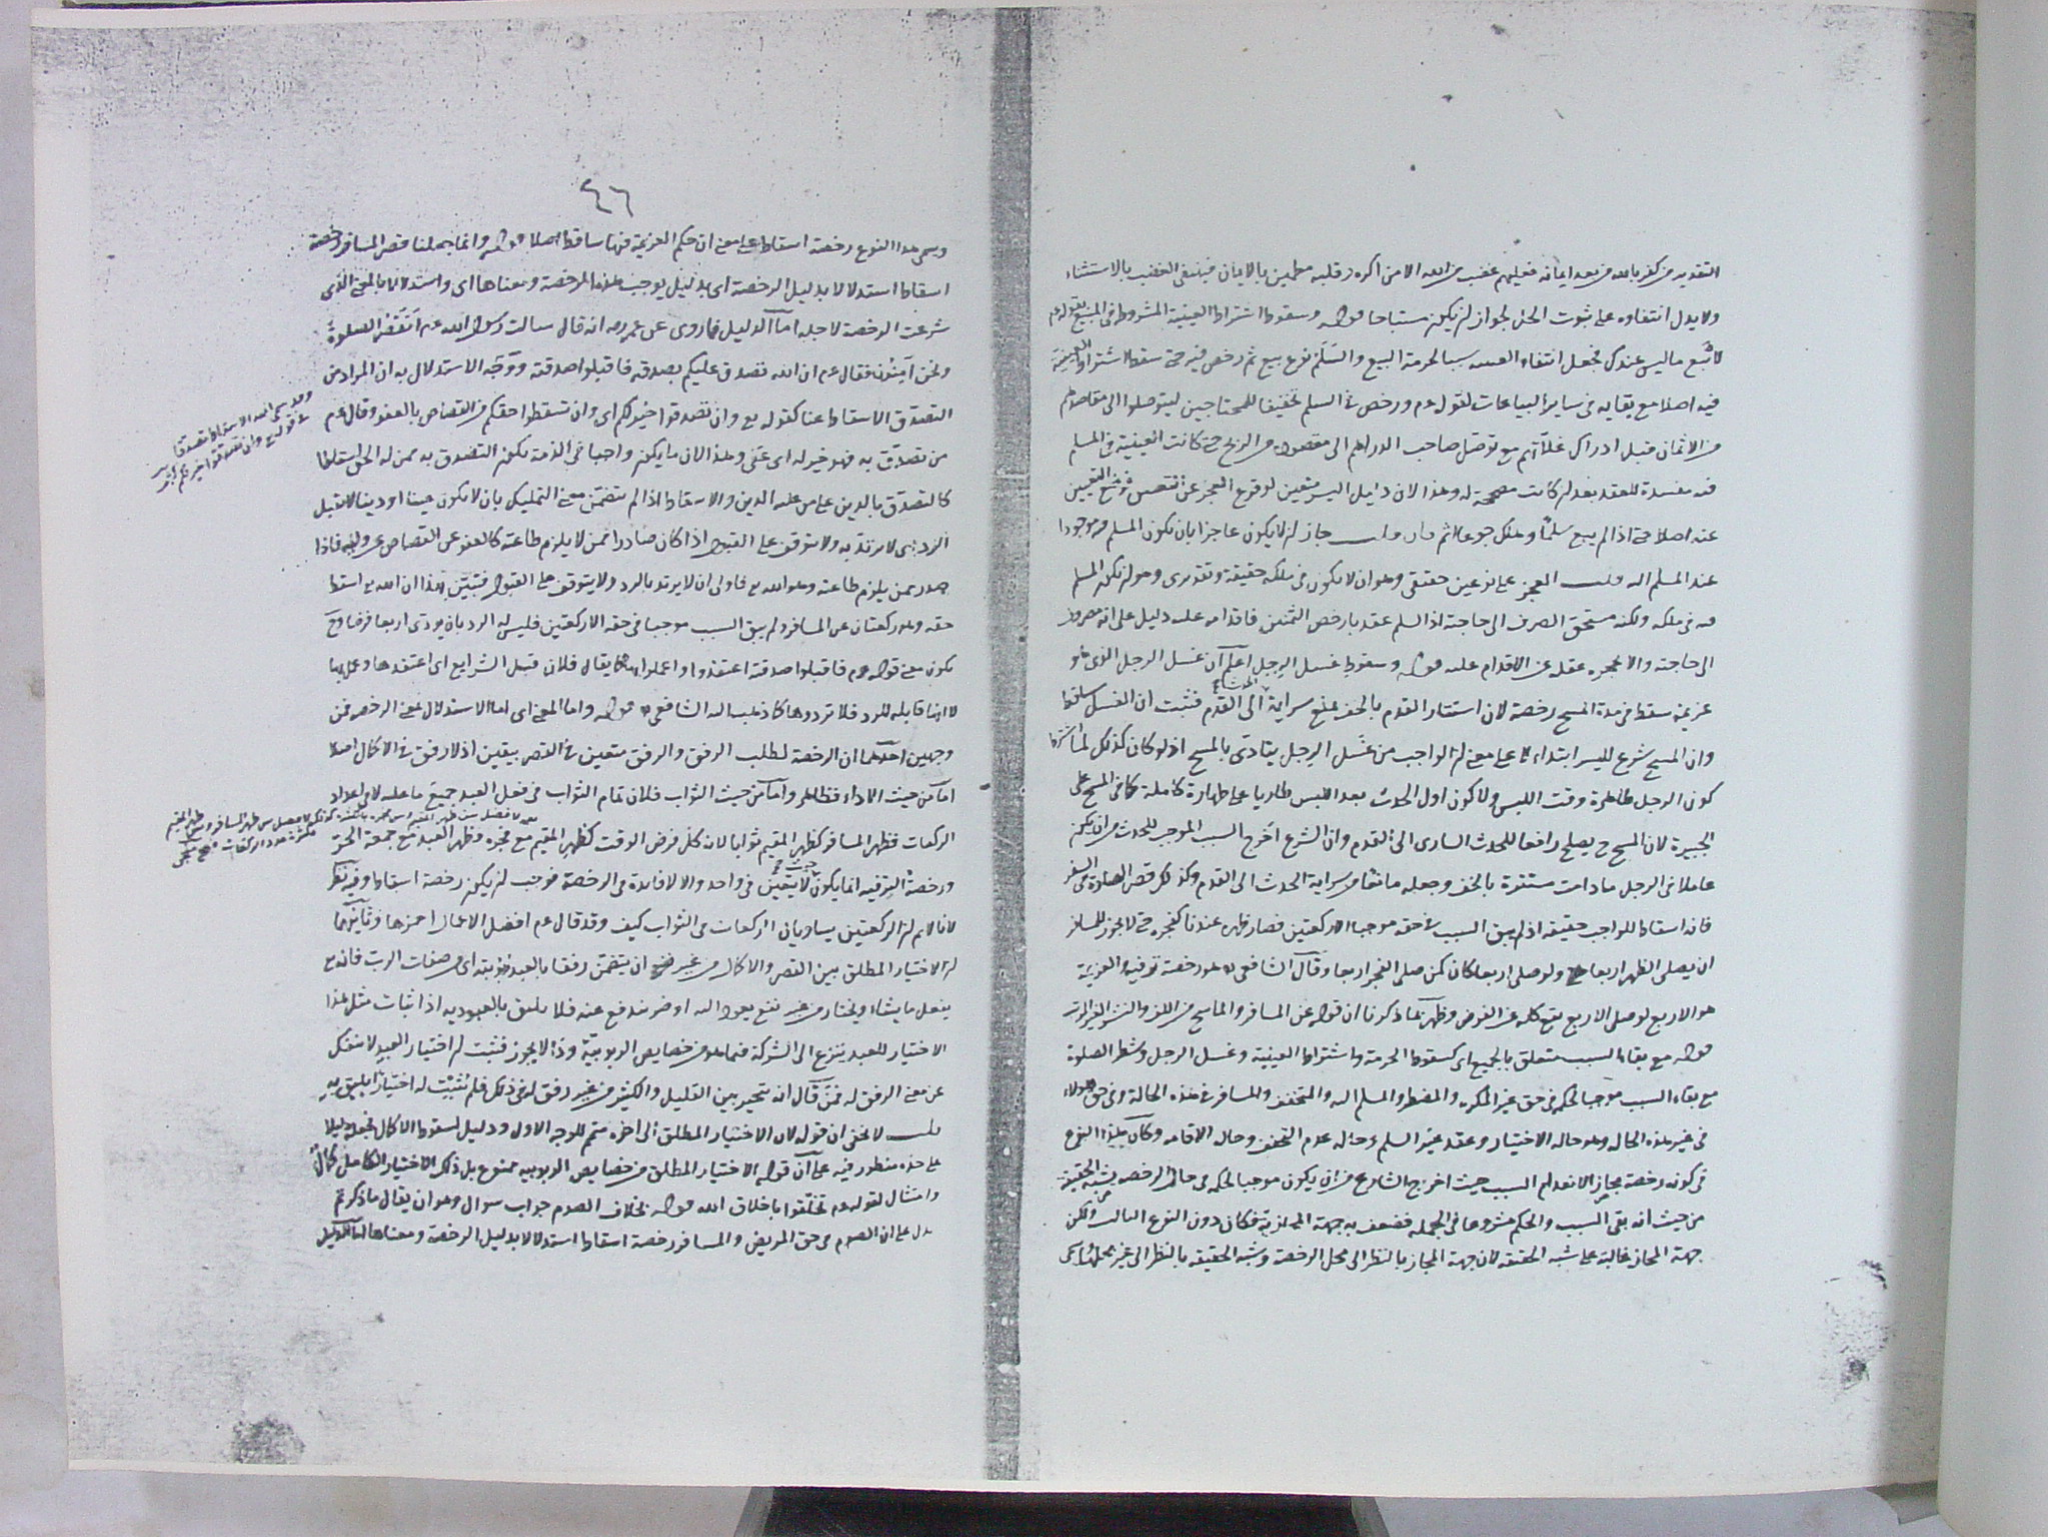 التقدير من كفر بالله من بعد ايمانه فعليهم غضب من الله الا من اكره وقلبه مطمئن بالايمان فينتفي الغضب بالاستثناء
ولا يدل انتفاوه على ثبوت الحل لجواز ان يكون مستباحا قوله وسقوط اشتراط العينية المشروطة في المبيع بقوله عم
لا تبع ما ليس عندك فجعل انتفاء العينية سببا لحرمة البيع والسلم نوع بيع ثم رخص فيه حتى سقط اشتراط العينية
فيه اصلا مع بقايه في ساير البياعات لقوله عم ورخص في السلم تخفيفا للمحتاجين ليتوصلوا الى مقاصدهم
من الاثمان قبل ادراك غلاتهم مع توصل صاحب الدراهم الى مقصوده من الربح حتى كانت العينية في المسلم
فيه مفسدة للعقد بعد ان كانت مصححة له وهذا لان دليل اليسر متعين لوقوع العجز عن التعيين فوضع التعيين
عنه اصلا حتى اذا لم يبع سلما وهلك جوعا اثم فان قلت جاز ان لا يكون عاجزا بان يكون المسلم فيه موجودا
عند المسلم اليه قلت العجز على نوعين حقيقي وهو ان لا يكون في ملكه حقيقة وتقديري وهو ان يكون المسلم
فيه في ملكه ولكنه مستحق الصرف الى حاجته اذ السلم عقد بارخص الثمنين فاقدامه عليه دليل على انه مصروف
الى حاجته والا لحجره عقله عن الاقدام عليه قوله وسقوط غسل الرجل اعلم ان غسل الرجل الذي هو
عزيمة سقط في مدة المسح رخصة لان استتار القدم بالخف يمنع سراية الحدث الى القدم فثبت ان الغسل ساقط
وان المسح شرع لليسر ابتداء لا على معنى ان الواجب من غسل الرجل يتادى بالمسح اذ لو كان كذلك لما اشترط
كون الرجل طاهرة وقت اللبس ولا كون اول الحدث بعد اللبس طاريا على طهارة كاملة كما في المسح على
الجبيرة لان المسح ح يصلح رافعا للحدث الساري الى القدم وان الشرع اخرج السبب الموجب للحدث من ان يكون
عاملا في الرجل ما دامت مستترة بالخف وجعله مانعا من سراية الحدث الى القدم وكذلك قصر الصلوة في السفر
فانه اسقاط للواجب حقيقة اذ لم يبق السبب في حقه موجبا الا ركعتين فصار ظهره عندنا كفجره حتى لا يجوز للمسافر
ان يصلي الظهر اربعا ولو صلى اربعا كان كمن صلى الفجر اربعا وقال الشافعي هو رخصة ترفيه والعزيمة
هو الاربع لو صلى الاربع يقع كله عن الفرض وظهر بما ذكرنا ان قوله عن المسافر والماسح من اللف والنشر الغير المرتب
قوله مع بقاء السبب متعلق بالجميع اي كسقوط الحرمة واشتراط العينية وغسل الرجل وشطر الصلوة
مع بقاء السبب موجبا لحكمه في حق غير المكره والمضطر والمسلم اليه والمتخفف والمسافر في هذه الحالة وفي حق هولاء
في غير هذه الحال وهو حالة الاختيار وعقد غير السلم وحاله عدم التخفف وحالة الاقامة وكان هذا النوع
في كونه رخصة مجازا لانعدام السبب حيث اخرج الشارع من ان يكون موجبا لحكمه في حالة الرخصة يشبه الحقيقة
من حيث انه بقي السبب والحكم مشروعا في الجملة فضعف به جهة المجازية فكان دون النوع الثالث ولكن
جهة المجاز غالبة على شبه الحقيقة لان جهة المجاز بالنظر الى محل الرخصة وشبه الحقيقة بالنظر الى غير محلها
٤٦
وسمي هذا النوع رخصة اسقاط على معنى ان حكم العزيمة فيها ساقط اصلا قوله وانما جعلنا قصر المسافر رخصة
اسقاط استدلالا بدليل الرخصة اي بدليل يوجب هذه الرخصة ومعناها اي واستدلالا بالمعنى الذي
شرعت الرخصة لاجله اما الدليل فما روي عن عمر رضه انه قال سالت رسول الله عم انقصر الصلوة
ونحن آمنون فقال عم ان الله تصدق عليكم بصدقة فاقبلوا صدقته ووجه الاستدلال به ان المراد من
التصدق الاسقاط عنا كقوله تع وان تصدقوا خير لكم اي وان تسقطوا حقكم من القصاص بالعفو وقال عم
من تصدق به فهو خير له اي عفى وهذا لان ما يكون واجبا في الذمة يكون التصدق به ممن له الحق اسقاطا
وقد سمى الله الاسقاط تصدقا
في قوله تع وان تصدقوا خير لكم
كالتصدق بالدين على من عليه الدين والاسقاط اذا لم يتضمن معنى التمليك بان لا يكون عينا او دينا لا يقبل
الرد اي لا يرتد به ولا يتوقف على القبول اذا كان صادرا ممن لا يلزم طاعته كالعفو عن القصاص من وليه فاذا
صدر ممن يلزم طاعته وهو الله تع فاولى ان لا يرتد بالرد ولا يتوقف على القبول فتبين بهذا ان الله تع اسقط
حقه وهو ركعتان عن المسافر ولم يبق السبب موجبا في حقه الا ركعتين فليس له الرد بان يودي اربعا فرضا وح
يكون معنى قوله عم فاقبلوا صدقته اعتقدوا واعملوا بها كما يقال فلان قبل الشرايع اي اعتقدها وعمل بها
لا انها قابلة للرد فلا تردوها كما ذهب اليه الشافعي قوله واما المعنى اي اما الاستدلال بمعنى الرخصة فمن
وجهين احدهما ان الرخصة لطلب الرفق والرفق متعين في القصر بيقين اذ لا رفق في الاكمال اصلا
اما من حيث الاداء فظاهر واما من حيث الثواب فلان تمام الثواب في فعل العبد جميع ما عليه لا في اعداد
الركعات فظهر المسافر كظهر المقيم ثوابا لانه كل فرض الوقت كظهر المقيم مع فجره وظهر العبد مع جمعة الحر
ورخصة الترفيه انما يكون حيث لا يتعين في واحد والا لا فايدة في الرخصة فوجب ان يكون رخصة اسقاط وفيه نظر
لانا لا نم ان الركعتين يساويان الركعات في الثواب كيف وقد قال عم افضل الاعمال احمزها وثانيهما
ان الاختيار المطلق بين القصر والاكمال من غير ان يتضمن رفقا بالعبد ربوبية اي من صفات الرب فانه تع
يفعل ما يشاء ويختار من غير نفع يعود اليه او ضر يندفع عنه فلا يليق بالعبودية اذ اثبات مثل هذا
الاختيار للعبد ينزع الى الشركة فيما هو من خصايص الربوبية وذا لا يجوز فثبت ان اختيار العبد لا ينفك
عن معنى الرفق له فمن قال انه يتخير بين القليل والكثير من غير رفق له في ذلك فلم يثبت له اختيارا يليق به
قلت لا يخفى ان قوله لان الاختيار المطلق الى اخره متمم للوجه الاول ودليل لسقوط الاكمال فجعله دليلا
على حدة منظور فيه على ان قوله الاختيار المطلق من خصايص الربوبية ممنوع بل ذلك الاختيار الكامل كمال
وامتثال لقوله عم تخلقوا باخلاق الله قوله بخلاف الصوم جواب سوال وهو ان يقال ما ذكرتم
يدل على ان الصوم في حق المريض والمسافر رخصة اسقاط استدلالا بدليل الرخصة ومعناها اما الدليل